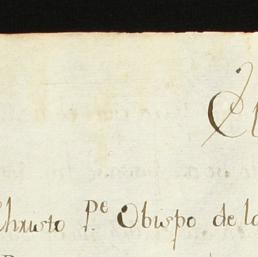 Christo P.e Obispo de la